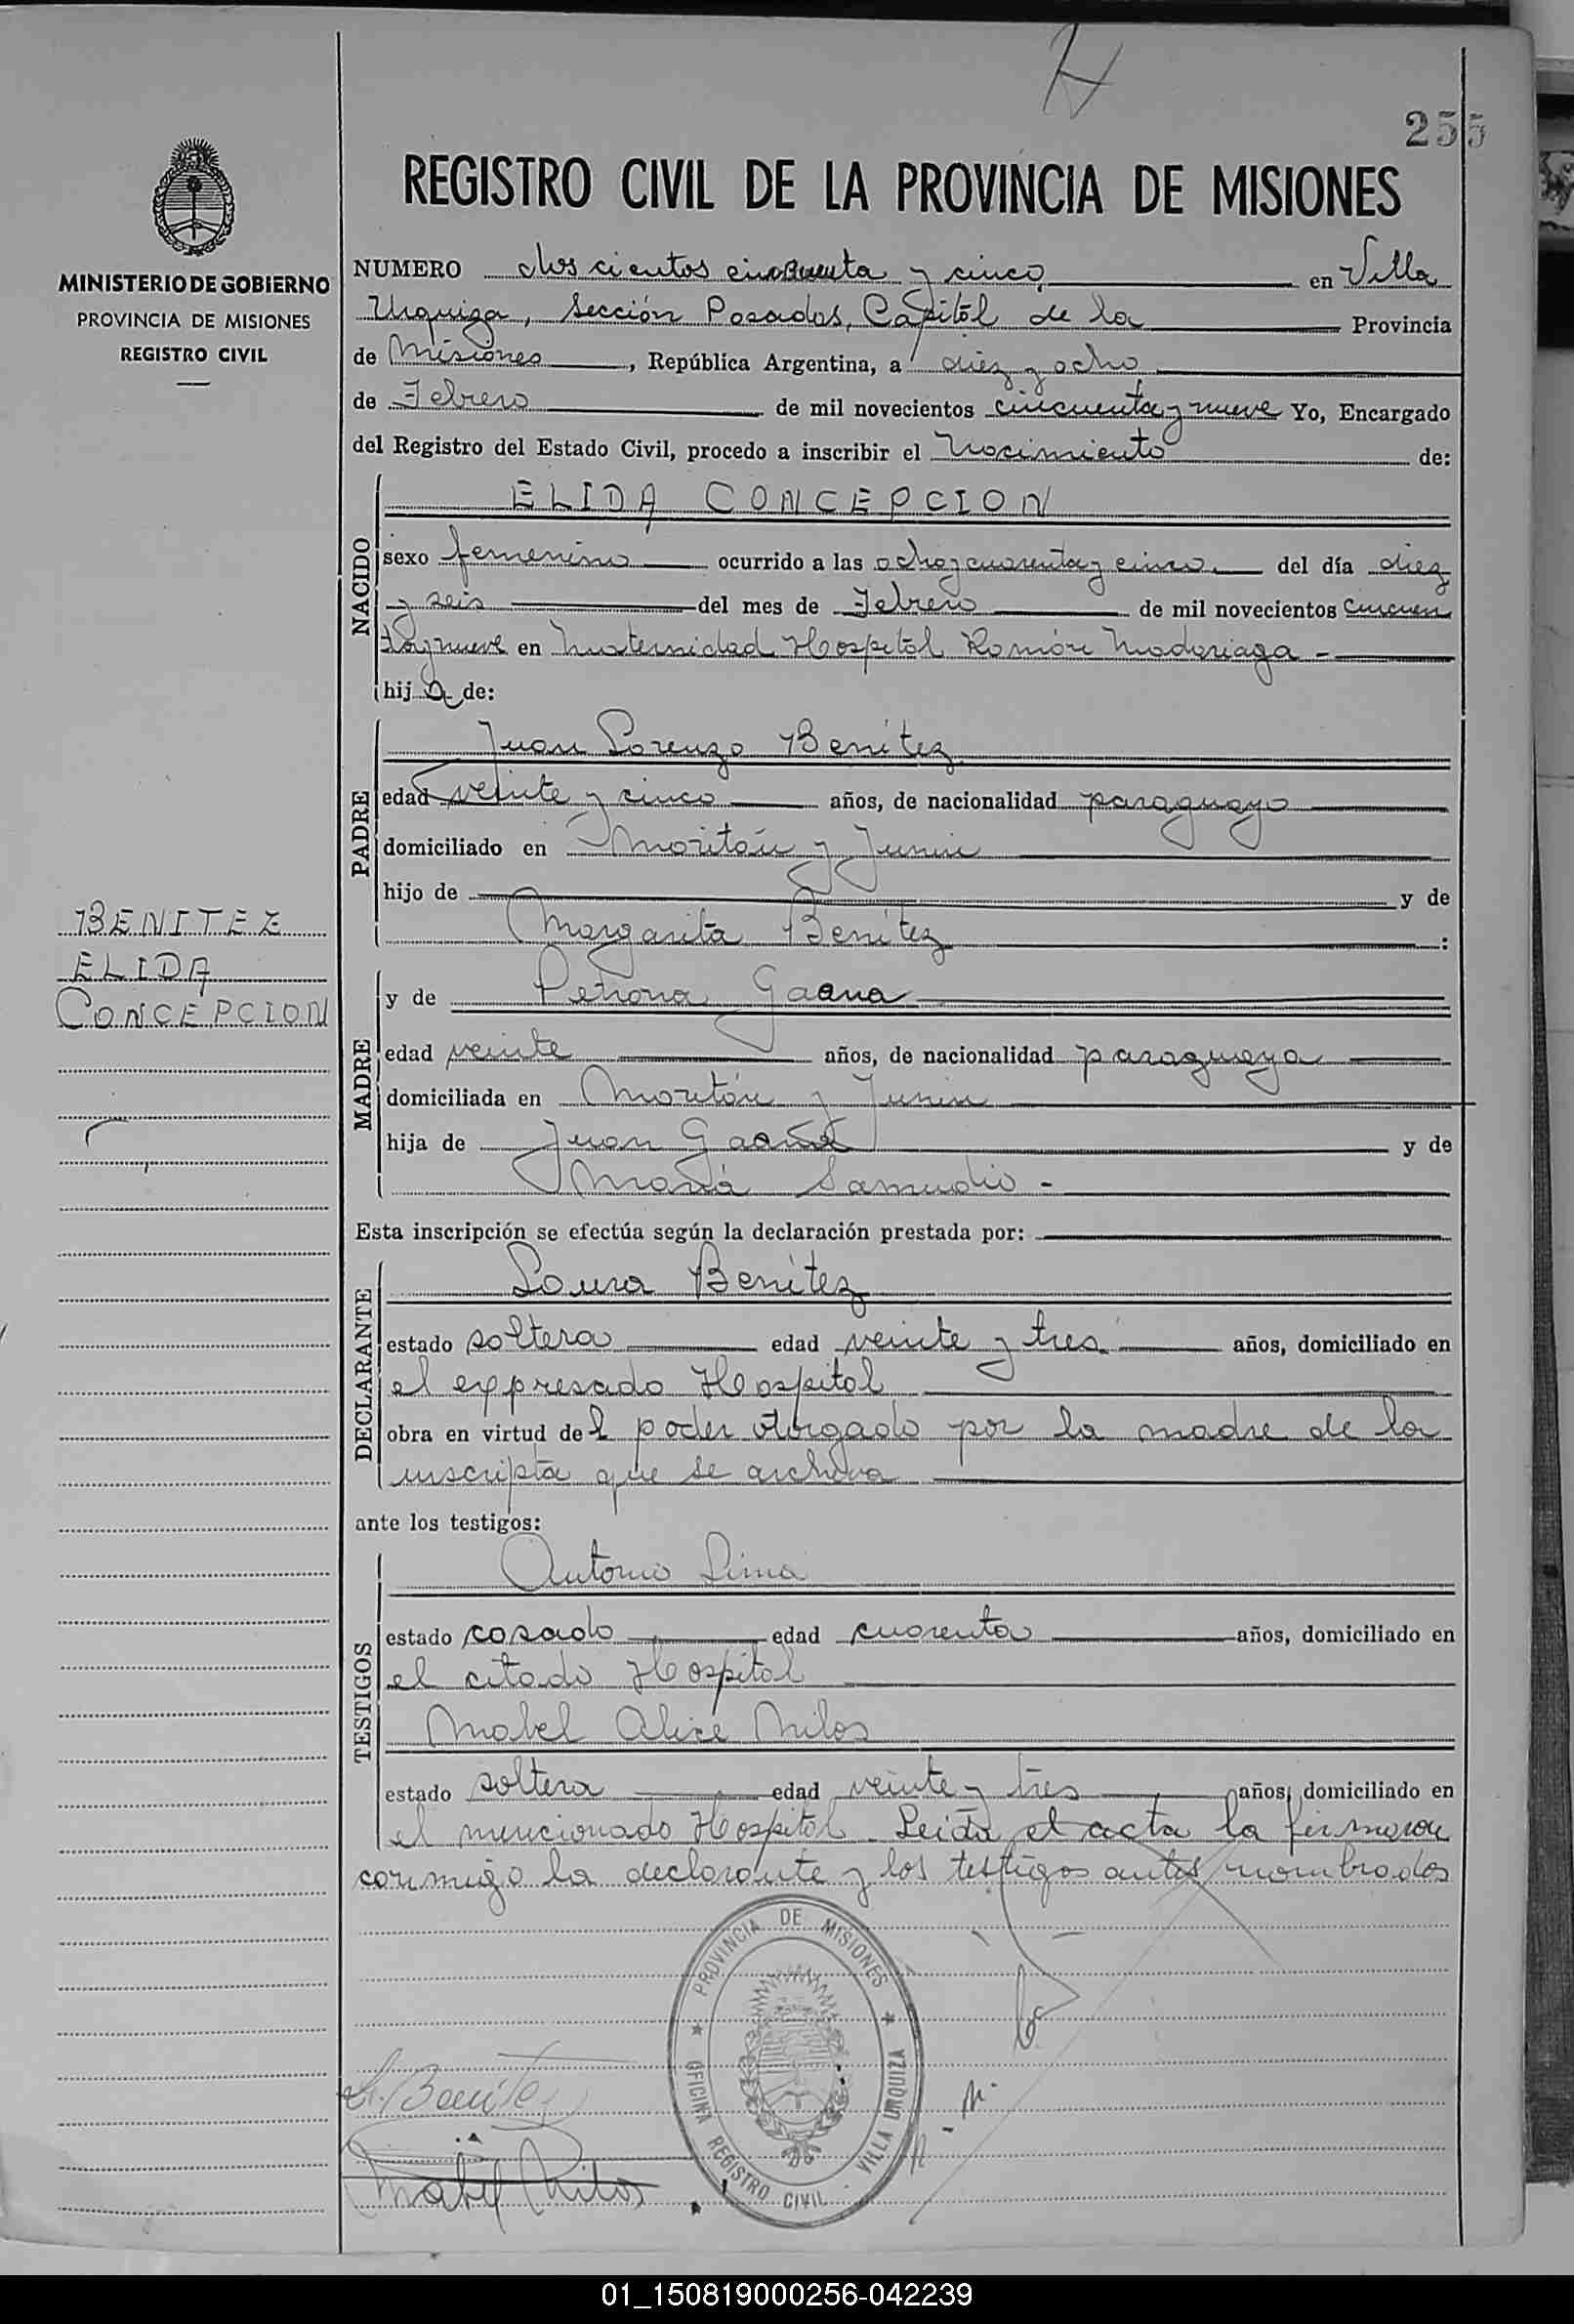 255
REGISTRO CIVIL DE LA PROVINCIA DE MISIONES
MINISTERIO DE GOBIERNO
PROVINCIA DE MISIONES
REGISTRO CIVIL
NUMERO dos cientos cincuenta y cinco en Villa
Urquiza, Sección Posadas, Capitól de la Provincia
de Misiones, República Argentina, a diez y ocho
de Febrero de mil novecientos cincuenta y nueve Yo, Encargado
del Registro del Estado Civil, procedo a inscribir el Nacimiento de:
NACIDO
ELIDA CONCEPCION
sexo femenino ocurrido a las ocho y cuarenta y cinco del día diez
y seis del mes de Febrero de mil novecientos cincuen
ta y nueve en Maternidad Hospitál Ramón Madariaga -
hij a de:
PADRE
Juan Lorenzo Benítez
edad veinte y cinco años, de nacionalidad paraguayo
domiciliado en y Junin
hijo de y de
Margarita Benítez :
MADRE
y de Petrona Gaona
edad veinte años, de nacionalidad paraguaya
domiciliada en y Junin
hija de Juan y de
María Samudio -
Esta inscripción se efectúa según la declaración prestada por:
DECLARANTE
Laura Benítez
estado soltera edad veinte y tres años, domiciliado en
el expresado Hospitol
obra en virtud de l poder otorgado por la madre de la
inscripta que se archiva
ante los testigos:
TESTIGOS
Antonio Lima
estado casado edad cuarenta años, domiciliado en
el citado Hospitol
Mabel Alice Milos
estado soltera edad veinte y tres años, domiciliado en
el mencionado Hospitol. Leida el acta la firmaron
conmigo la declarante y los testigos antes nombrados
BENITEZ
ELIDA
CONCEPCION
PROVINCIA DE MISIONES
OFICINA REGISTRO CIVIL VILLA URQUIZA
L. Benítez
Mabel Milos
01_150819000256-042239